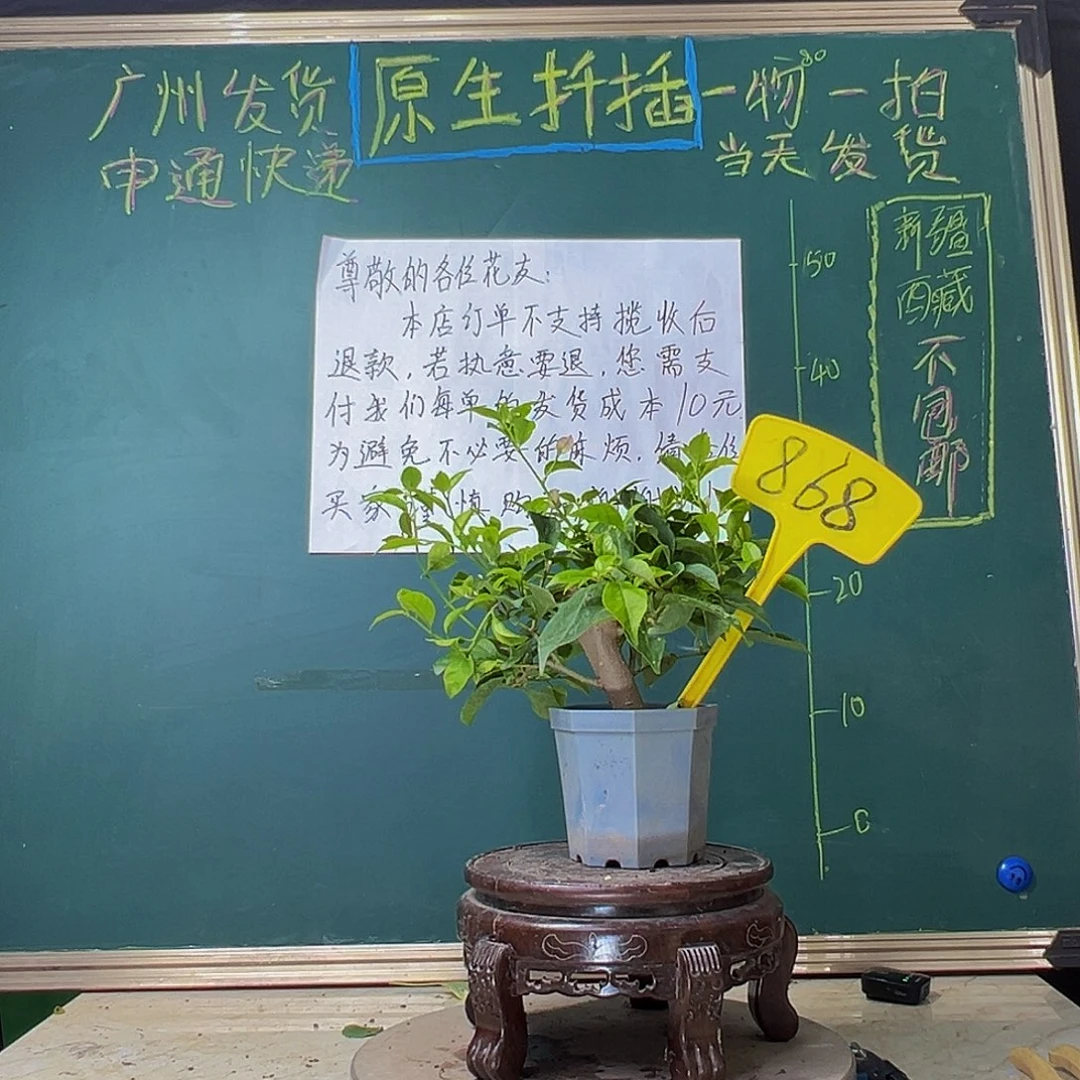 广州发货
申通快递
原生扦插
一物一拍
80
当天发货
新疆
西藏
不
包
邮
50
40
20
10
0
尊敬的各位花友:
本店订单不支持揽收后
退款,若执意要退,您需支
付我们每单的发货成本10元
为避免不必要的麻烦,
买家 慎
868